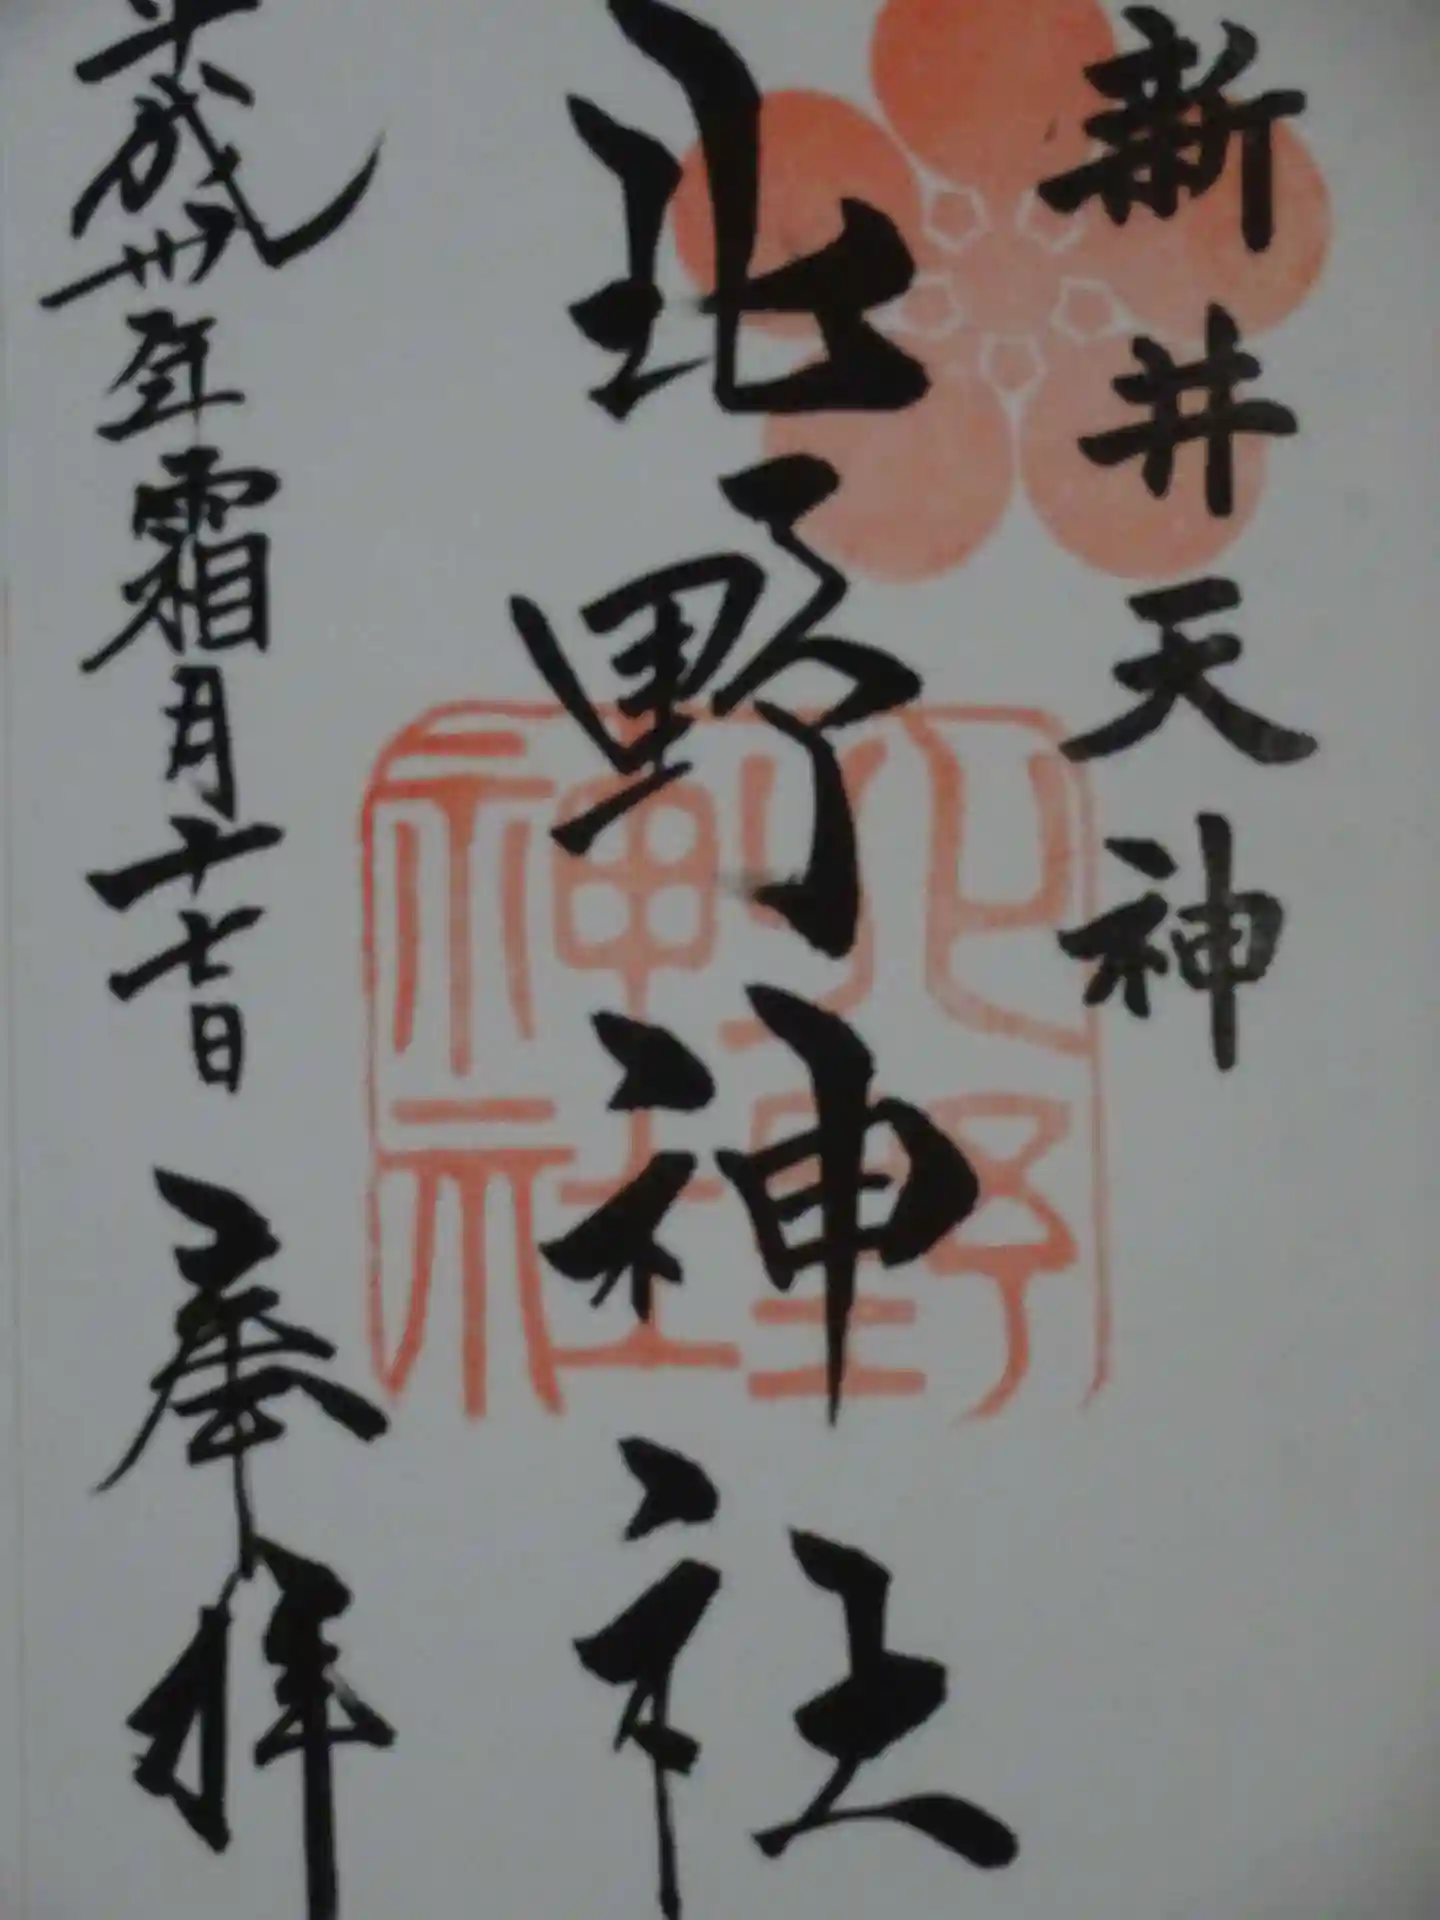 新井天神
北野神社
平成年霜月十七日 奉拝
北野
神社